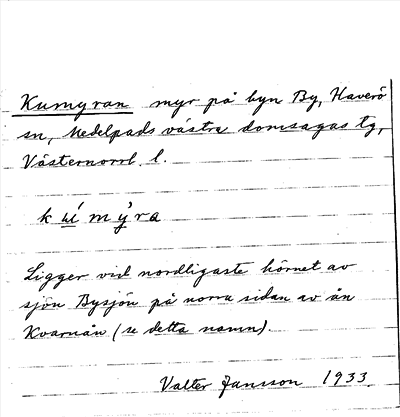 Kumyran myr på byn By, Haverö
sn, Medelpads västra domsagas tg,
Västernorrl. l.
kuímy̓ra
Ligger vid nordligaste hörnet av
sjön Bysjön på norra sidan av ån
Kvarnån (se detta namn).
Valter Jansson 1933.